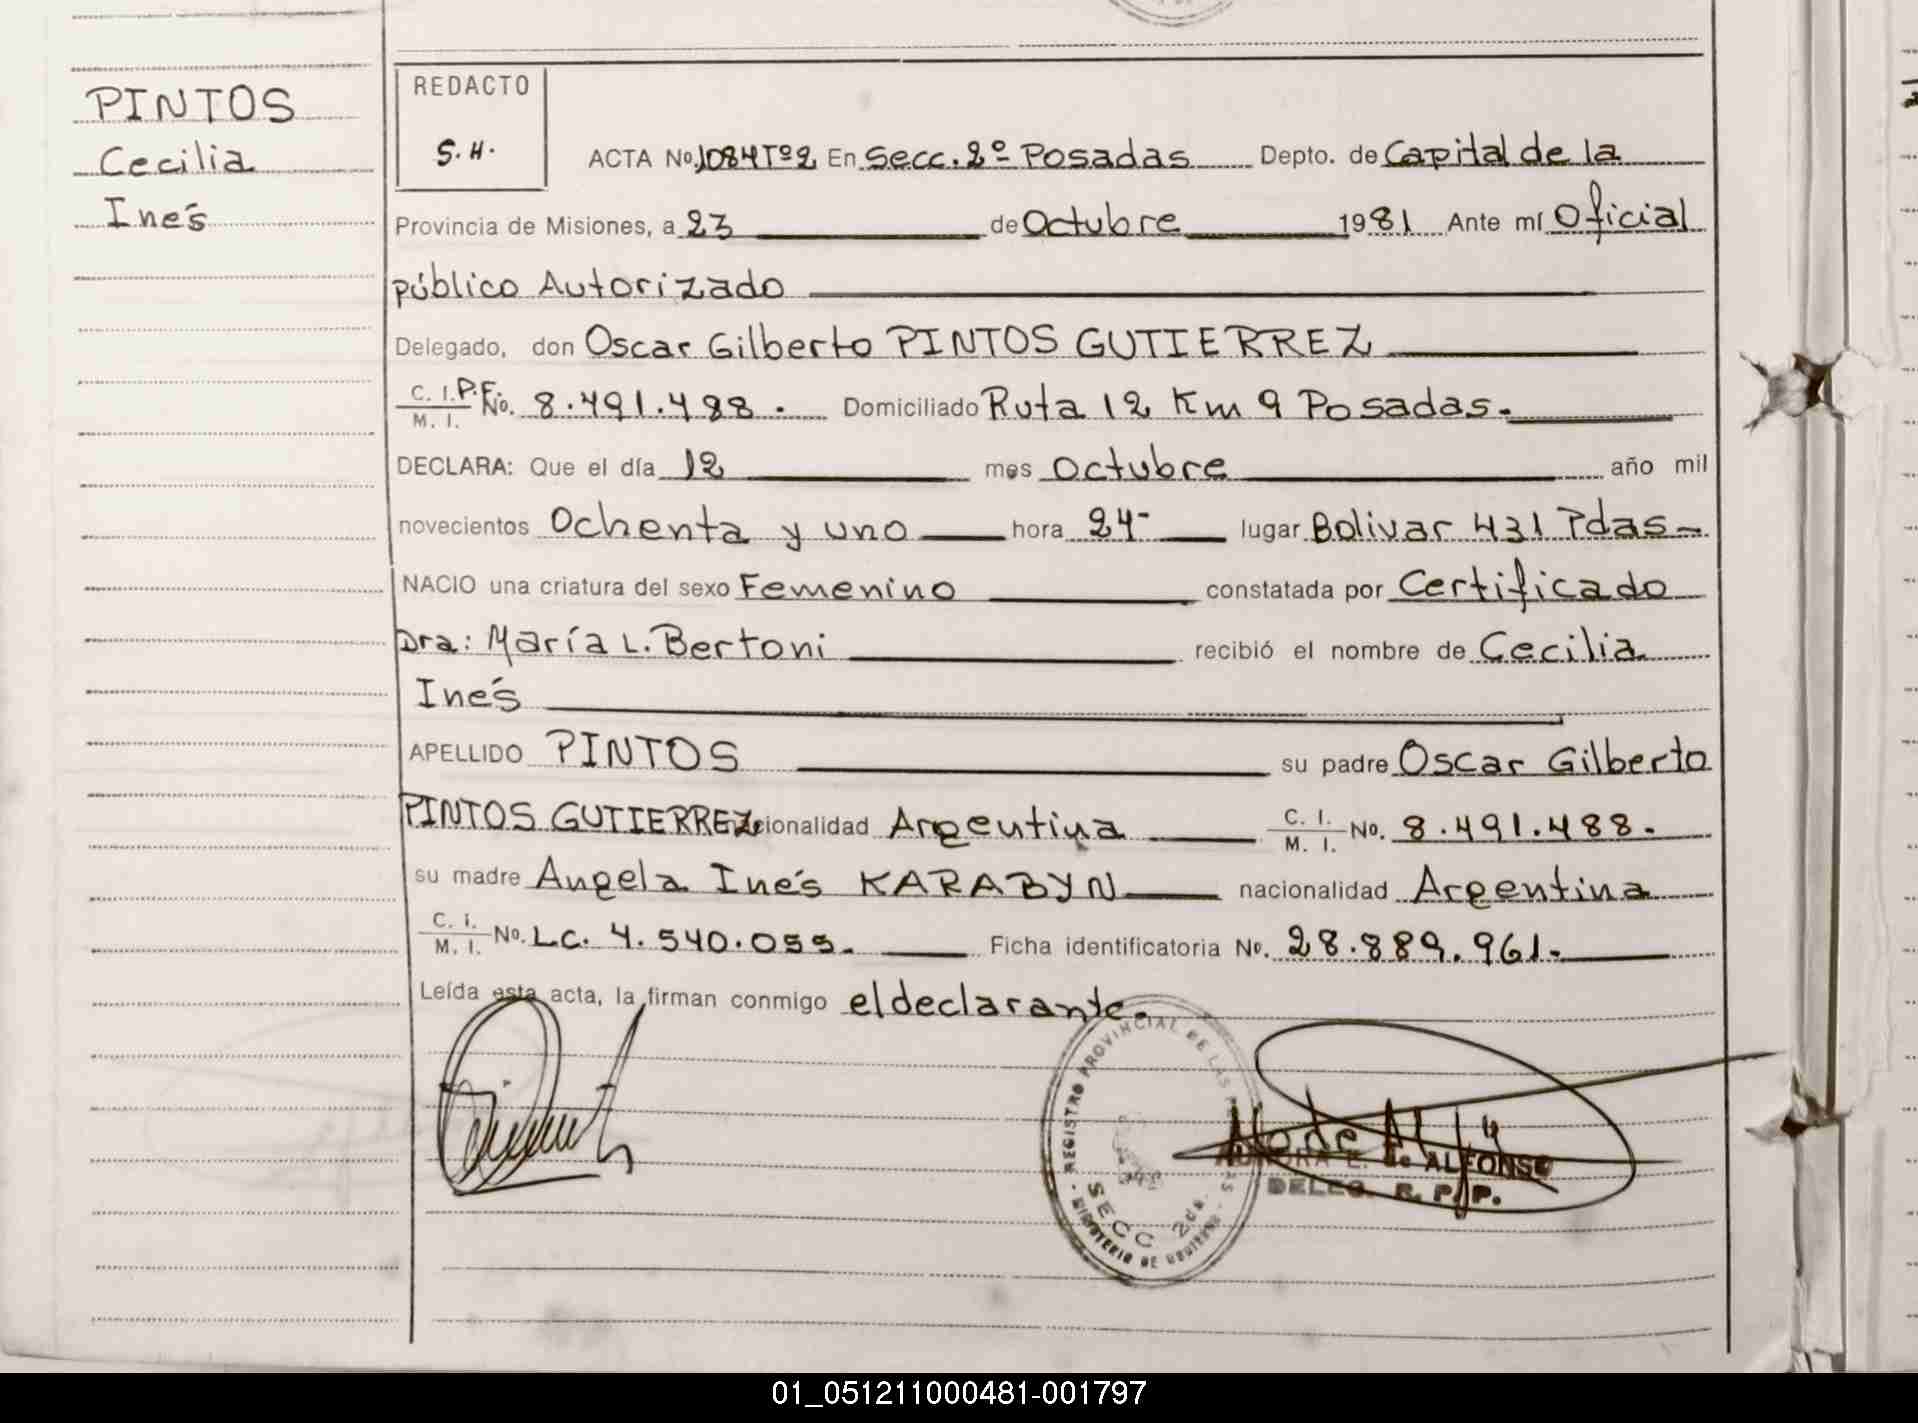 PINTOS
Cecilia
Inés
REDACTO
S.H.
ACTA No. 1084 Tº2 En Secc. 2º Posadas Depto. de Capital de la
Provincia de Misiones, a 23 de Octubre 1981 Ante mí Oficial
público Autorizado
Delegado, don Oscar Gilberto PINTOS GUTIERREZ
C. I. P.F. M. I. No. 8.491.488. Domiciliado Ruta 12 Km 9 Posadas.
DECLARA: Que el día 12 mes Octubre año mil
novecientos Ochenta y uno hora 24- lugar Bolivar 431 Pdas-
NACIO una criatura del sexo Femenino constatada por Certificado
Dra: María L. Bertoni recibió el nombre de Cecilia
Inés
APELLIDO PINTOS su padre Oscar Gilberto
PINTOS GUTIERREZ nacionalidad Argentina C. I. M. I. No. 8.491.488.
su madre Angela Inés KARABYN nacionalidad Argentina
C. I. M. I. No. L.C. 4.540.055. Ficha identificatoria No. 28.889.961.
Leída esta acta, la firman conmigo el declarante.
REGISTRO PROVINCIAL DE LAS
SECC 2da.
MINISTERIO DE GOBIERNO
E. de ALFONSO
DELEG. R. P. P.
01_051211000481-001797